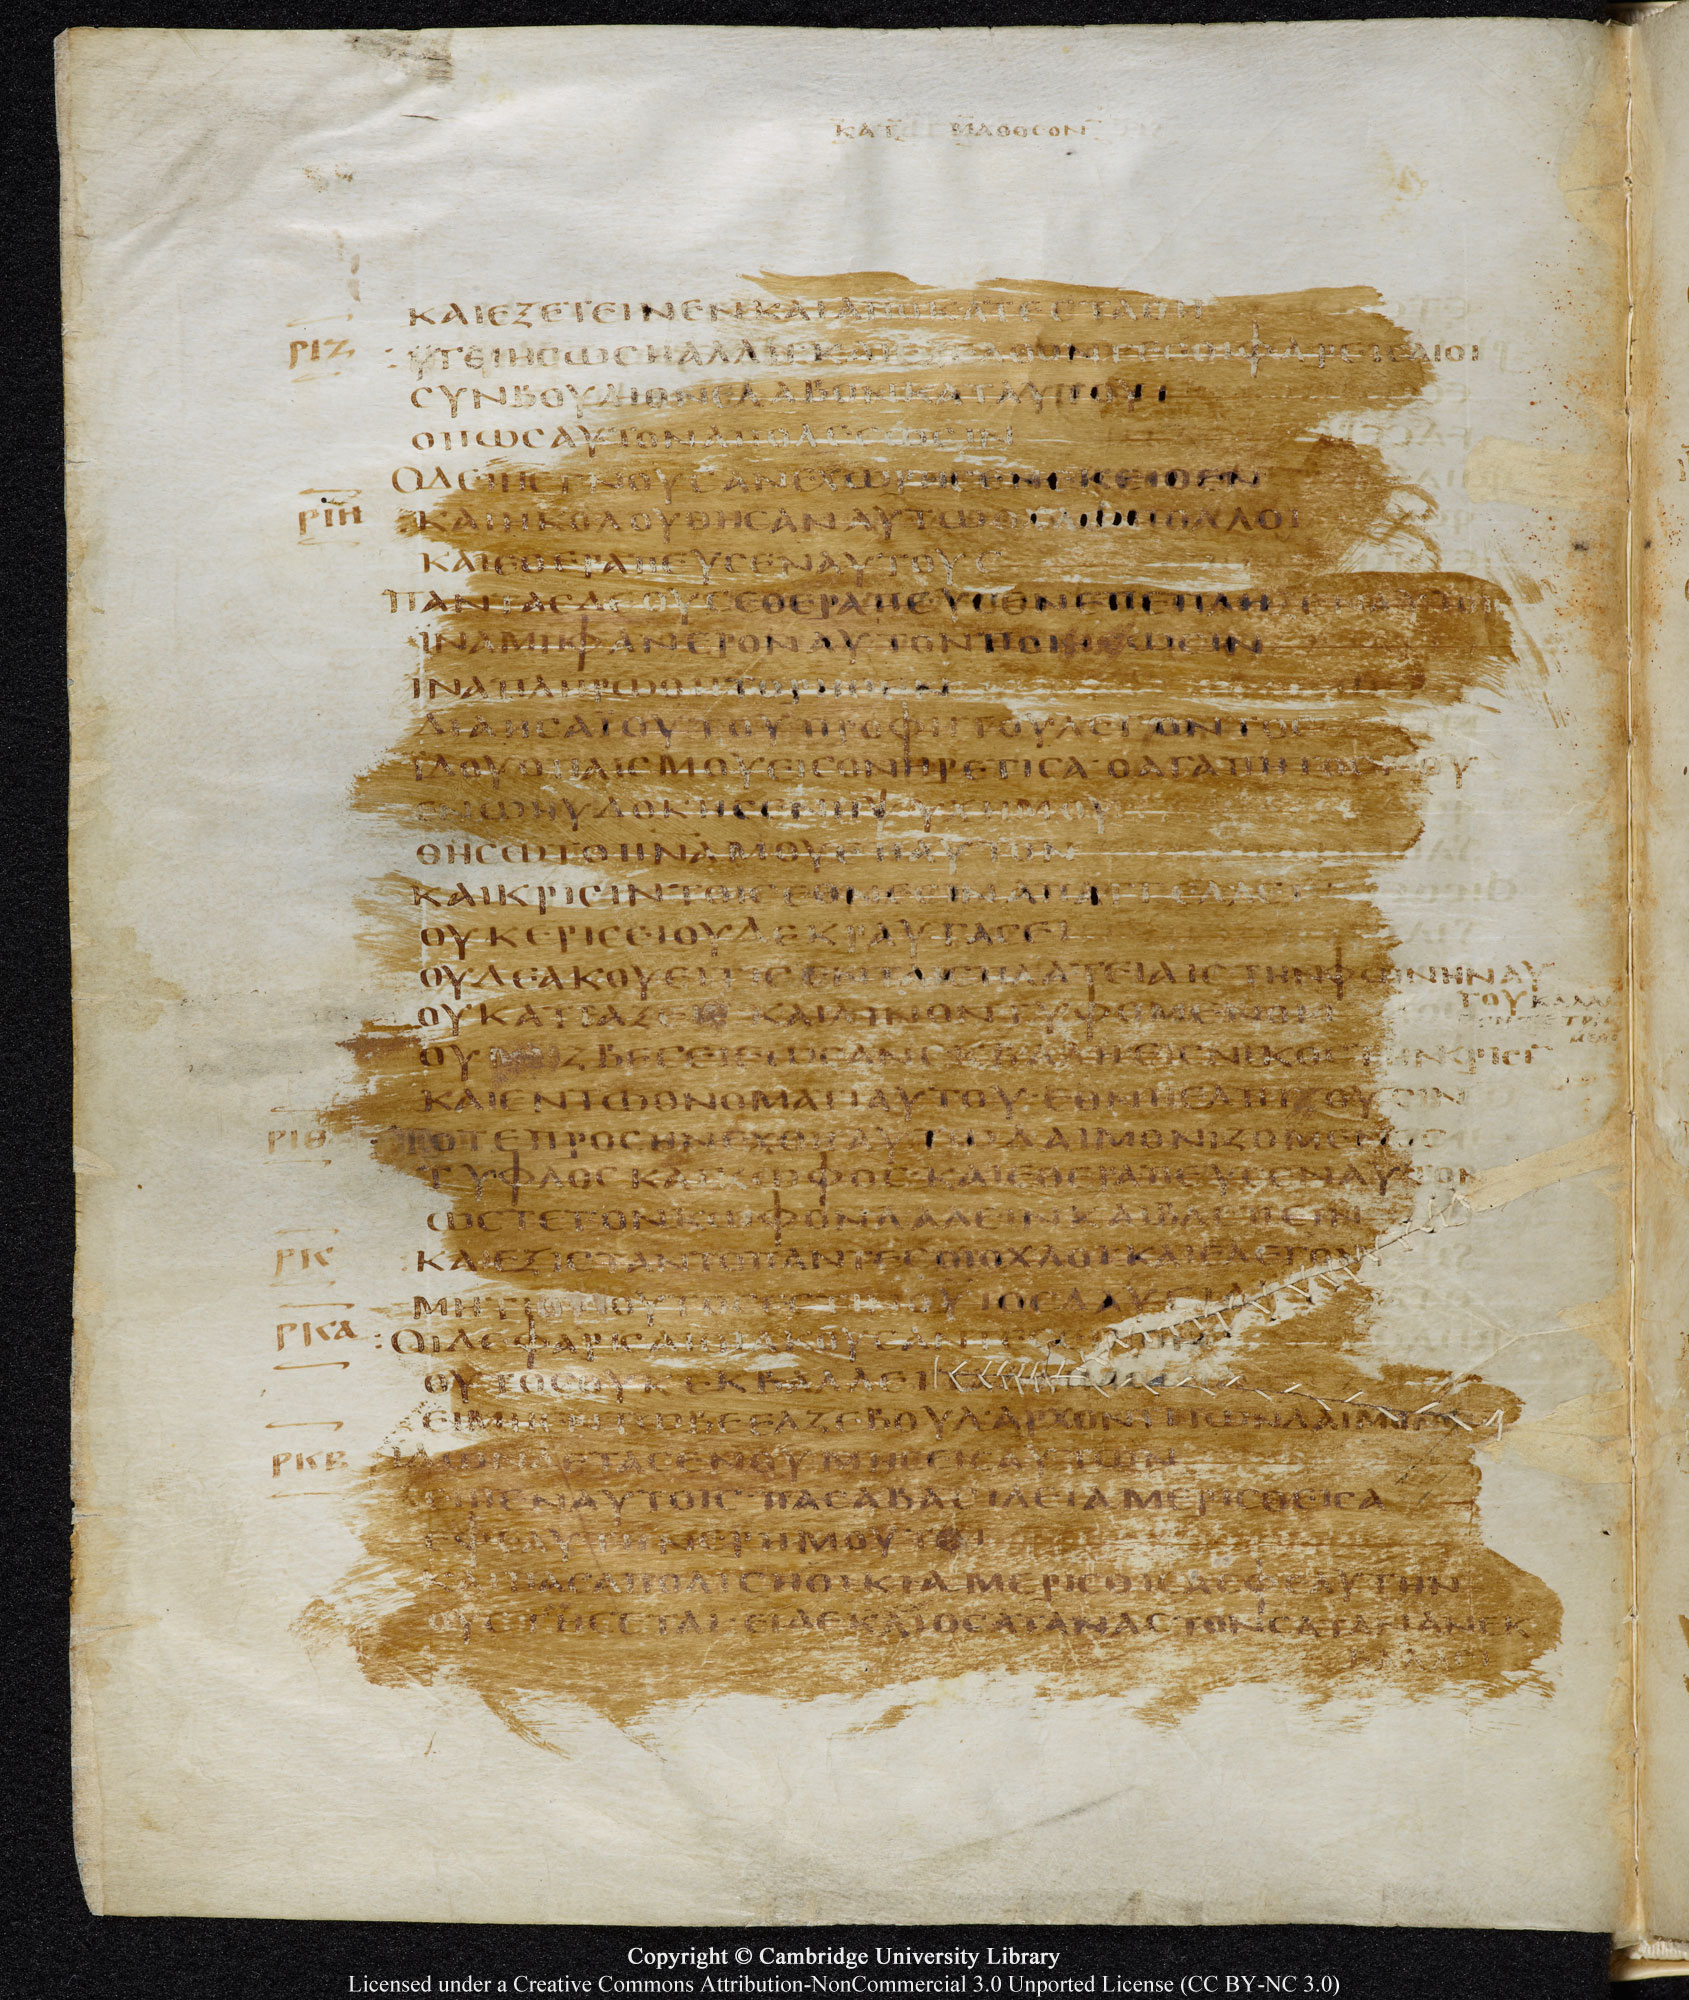 ΚΑΤ ΜΑΘΘΕΟΝ
ΚΑΙΕΞΕΤΕΙΝΕΝΚΑΙΑΠΟΚΑΤΕϹΤΑΘΗ
ΡΙΖ ΥΓΕΙΗϹΩϹΗΑΛΛΗ ΚΑΙΕΞΕΛΘΟΝΤΕϹΟΙΦΑΡΕΙϹΑΙΟΙ
ϹΥΝΒΟΥΛΙΟΝΕΛΑΒΟΝΚΑΤΑΥΤΟΥ
ΟΠΩϹΑΥΤΟΝΑΠΟΛΕϹΩϹΙΝ
ΟΔΕΙΗϹΓΝΟΥϹΑΝΕΧΩΡΗϹΕΝΕΚΕΙΘΕΝ
ΡΙΗ ΚΑΙΗΚΟΛΟΥΘΗϹΑΝΑΥΤΩ ΟΧΛΟΙ
ΚΑΙΕΘΕΡΑΠΕΥϹΕΝΑΥΤΟΥϹ
ΠΑΝΤΑϹΔΕΟΥϹΕΘΕΡΑΠΕΥϹΕΝΕΠΕΠΛΗΞΕΝΑΥΤΟΙϹ
ΙΝΑΜΗΦΑΝΕΡΟΝΑΥΤΟΝΠΟΙΩϹΙΝ
ΙΝΑΠΛΗΡΩΘΗΤΟΡΗΘΕΝ
ΔΙΑΗϹΑΪΟΥΤΟΥΠΡΟΦΗΤΟΥΛΕΓΟΝΤΟϹ
ΪΔΟΥΟΠΑΙϹΜΟΥΕΙϹΟΝΗΡΕΤΙϹΑ·ΟΑΓΑΠΗΤΟϹΜΟΥ
ΕΝΩΗΥΔΟΚΗϹΕΝΗΨΥΧΗΜΟΥ
ΘΗϹΩΤΟΠΝΑΜΟΥΕΠΑΥΤΟΝ
ΚΑΙΚΡΙϹΙΝΤΟΙϹΕΘΝΕϹΙΝΑΠΑΓΓΕΛΕΙ
ΟΥΚΕΡΙϹΕΙΟΥΔΕΚΡΑΥΓΑϹΕΙ
ΟΥΔΕΑΚΟΥΕΙΤΙϹΕΝΤΑΙϹΠΛΑΤΕΙΑΙϹΤΗΝΦΩΝΗΝΑΥ
ΤΟΥ
ΟΥΚΑΤΕΑΞΕΙ ΚΑΙΛΙΝΟΝΤΥΦΟΜΕΝΟΝ
ΟΥ ΖΒΕϹΕΙΕΩϹΑΝΕΚΒΑΛΗΕΙϹΝΙΚΟϹΤΗΝΚΡΙϹΙ
ΚΑΙΕΝΤΩΟΝΟΜΑΤΙΑΥΤΟΥ·ΕΘΝΗΕΛΠΙΖΟΥϹΙΝ
ΡΙΘ ΤΟΤΕΠΡΟϹΗΝΕΧΘΗΑΥΤΩΔΑΙΜΟΝΙΖΟΜΕΝΟϹ
ΤΥΦΛΟϹΚΑΙΚΩΦΟϹ·ΚΑΙΕΘΕΡΑΠΕΥϹΕΝΑΥΤΟΝ
ΩϹΤΕΤΟΝΚΩΦΟΝΛΑΛΕΙΝΚΑΙΒΛΕΠΕΙΝ
ΡΚ ΚΑΙΕΞΙϹΤΑΝΤΟΠΑΝΤΕϹΟΙΟΧΛΟΙΚΑΙΕΛΕΓΟΝ
ΜΗΤΙ ΟΥΤΟϹΕϹΤΙΝΟΥΙΟϹΔΑΥΕΙΔ
ΡΚΑ :ΟΙΔΕΦΑΡΙϹΑΙΟΙΑΚΟΥϹΑΝΤΕϹ
ΟΥΤΟϹΟΥΚΕΚΒΑΛΛΕΙ
ΕΙΜΗΕΝΤΩΒΕΕΛΖΕΒΟΥΛ·ΑΡΧΟΝΤΙΤΩΝΔΑΙΜΟΝΙΩΝ
ΡΚΒ ΙΔΩΝΔΕΤΑϹΕΝΘΥΜΗϹΕΙϹΑΥΤΩΝ
ΕΙΠΕΝΑΥΤΟΙϹ·ΠΑϹΑΒΑϹΙΛΕΙΑΜΕΡΙϹΘΕΙϹΑ
ΕΦΕΑΥΤΗΝΕΡΗΜΟΥΤΑΙ
ΚΑΙΠΑϹΑΠΟΛΙϹΗΟΙΚΙΑΜΕΡΙϹΘΙϹΑΕΦΕΑΥΤΗΝ
ΟΥϹΤΗϹΕΤΑΙ·ΕΙΔΕΚΑΙΟϹΑΤΑΝΑϹΤΟΝϹΑΤΑΝΑΝΕΚ
ΒΑΛΛΕΙ
Copyright © Cambridge University Library
Licensed under a Creative Commons Attribution-NonCommercial 3.0 Unported License (CC BY-NC 3.0)